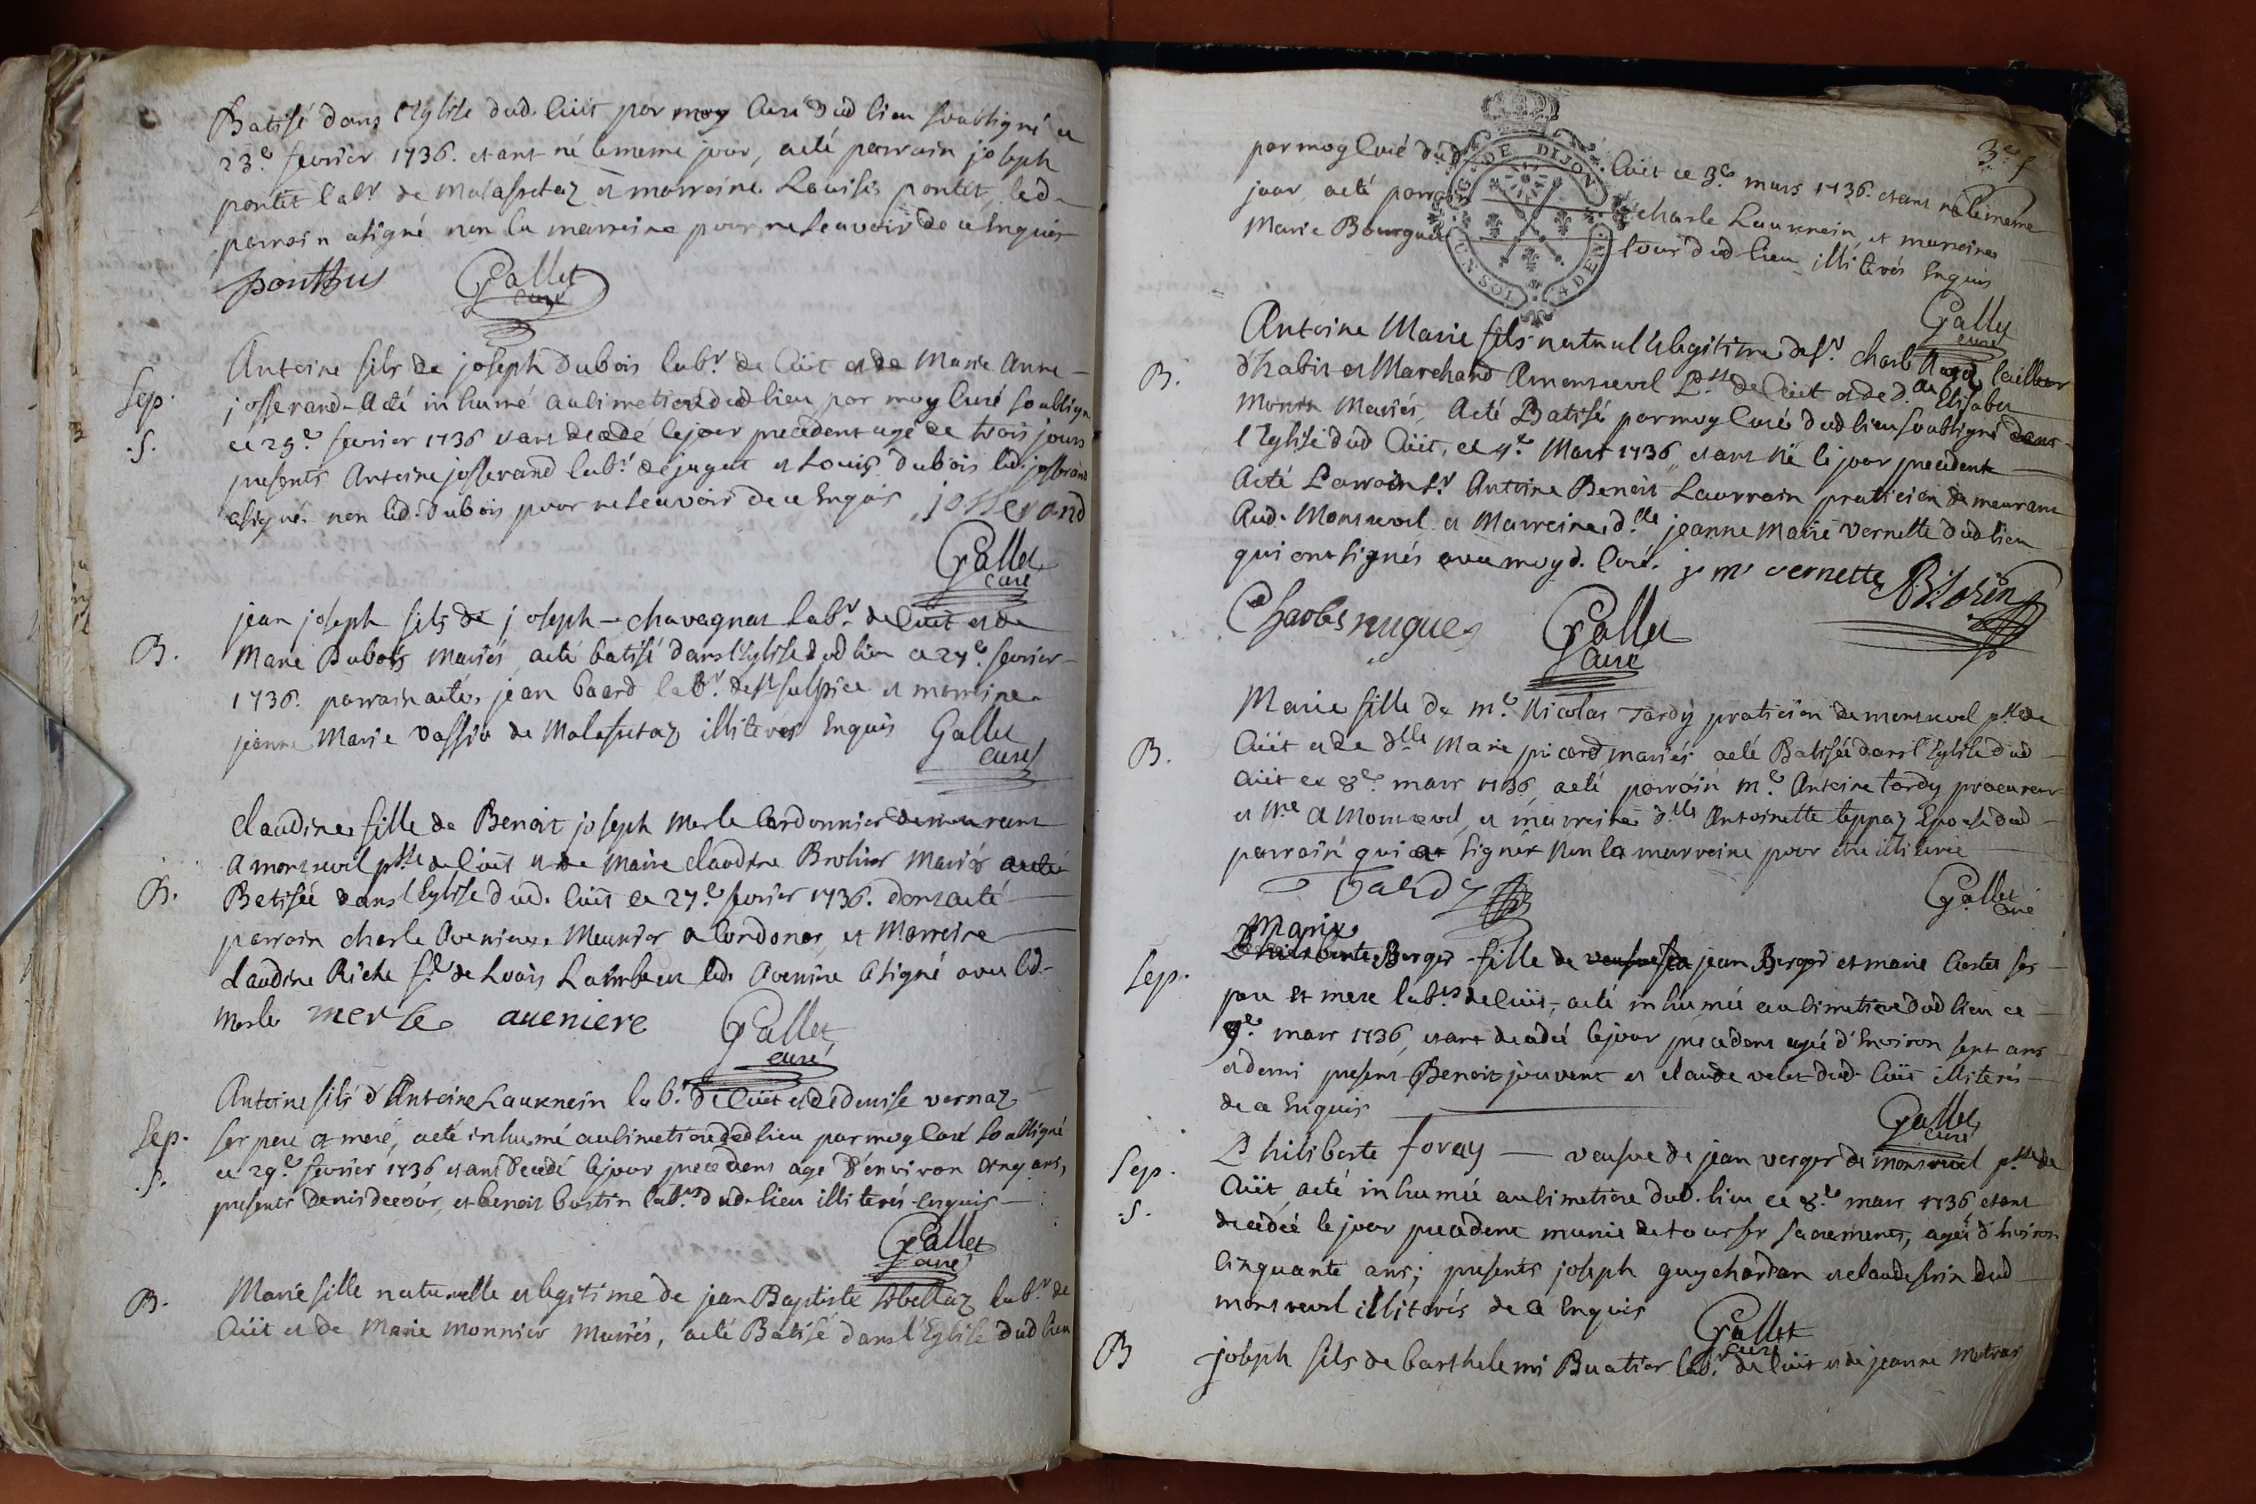 Batisé dans l'Eglise dud. Cuët par moy Curé dud lieu soubsigné ce
23.e fevrier 1736. etant né le meme jour, a eté parrain joseph
pontet lab.r de Malafretaz et marreine Louise pontet, led.
parrain a signé non la marreine pour ne scavoir de ce Enquis
ponthus Gallet
curé
Antoine fils de joseph Dubois lab.r de Cuët et de Marie Anne
Sep.
josserand a eté inhumé au cimetiere dud lieu par moy Curé soubsigné
.S.
ce 25.e fevrier 1736 etant decedé le jour precedent agé de trois jours
presents Antoine josserand lab.r de jayat et Louis Dubois led. josserand
a signé non led. Dubois pour ne scavoir de ce Enquis josserand
Gallet
curé
jean joseph fils de joseph chavagnat lab.r de Cuët et de
B.
Marie Dubois mariés a eté batisé dans l'Eglise dud lieu ce 27.e fevrier
1736. parrain a eté jean lab.r de st sulpice et marreine
jeanne Marie Vassio de Malafretaz illiterés Enquis Gallet
curé
Claudine fille de Benoit joseph Merle Cordonnier demeurant
a montrevel p.sse de Cuët et de Marie Claudine mariés a eté
B.
Batisée dans l'Eglise dud. Cuët ce 27.e fevrier 1736. dont a eté
parrain charle Aveniere Meunier a Cordonas, et Marreine
Claudine Riche f.e de Louis Lambert led. Aveniere a signé avec led.
Merle merle aueniere Gallet
curé
Antoine fils d'Antoine Laurencin lab.r de Cuët et de denise vernaz
Sep.
ses pere et mere, a eté inhumé au cimetiere dud lieu par moy Curé soubsigné
ce 29.e fevrier 1736 etant decedé le jour precedent agé d'environ cinq ans,
.S.
presents denis et benoit lab.rs dud. lieu illiterés Enquis
Gallet
curé
B.
Marie fille naturelle et legitime de jean Baptiste lab.r de
Cuët et de Marie Monnier Mariés, a eté Batisé dans l'Eglise dud lieu
3.e f
par moy Curé dud. Cuët ce 3.e mars 1736. etant né le meme
jour, a eté parrain charle Laurencin, et marreine
Marie Bourgue dud lieu illiterés Enquis
GEN. DE DIJON
Gallet
curé
Antoine Marie fils naturel et legitime de s.r charle tailleur
B.
d'habit et Marchand a montrevel P.sse de Cuët et de d.lle Elisabet
Monin Mariés, a eté Batisé par moy Curé dud lieu soubsigné dans
l'Eglise dud Cuët, ce 4.e Mars 1736 etant né le jour precedent
a eté Parrain s.r Antoine Benoit Laurrain praticien demeurant
Aud. Montrevel et Marreine d.lle jeanne Marie Vernette dud lieu
qui ont signés avec moy d. Curé. j m vernette
Charles nugue Gallet
Curé
Marie fille de m.e Nicolas Tardy praticien de montrevel p.sse de
B.
Cuët et de d.lle Marie picard mariés a eté Batisée dans l'Eglise dud
Cuët ce 8.e mars 1736, a eté parrain m.e Antoine tardy procureur
et N.re a Montrevel, et marreine d.lle Antoinette teppaz Epouse dud
parrain qui a signé non la marreine pour etre illiterée
Tardy Gallet
curé
Marie
Philiberte Berger fille de jean Berger et marie Curtet ses
Sep.
pere et mere lab.rs de Cuët, a eté inhumée au cimetiere dud lieu ce
9.e mars 1736, etant decedée le jour precedent agée d'Environ sept ans
et demi present Benoit jouvent et claude velet dud. Cuët illiterés
de ce Enquis
Gallet
curé
Philiberte foray veufve de jean verger de montrevel p.sse de
Sep.
Cuët a eté inhumée au cimetiere dud. lieu ce 8.e mars 1736, etant
.S.
decedée le jour precedent munie de tous ses sacrements, agée d'Environ
Cinquante ans; presents joseph guychardan et claude dud
montrevel illiterés de ce Enquis Gallet
curé
B
joseph fils de barthelemi Buatier lab.r de Cuët et de jeanne